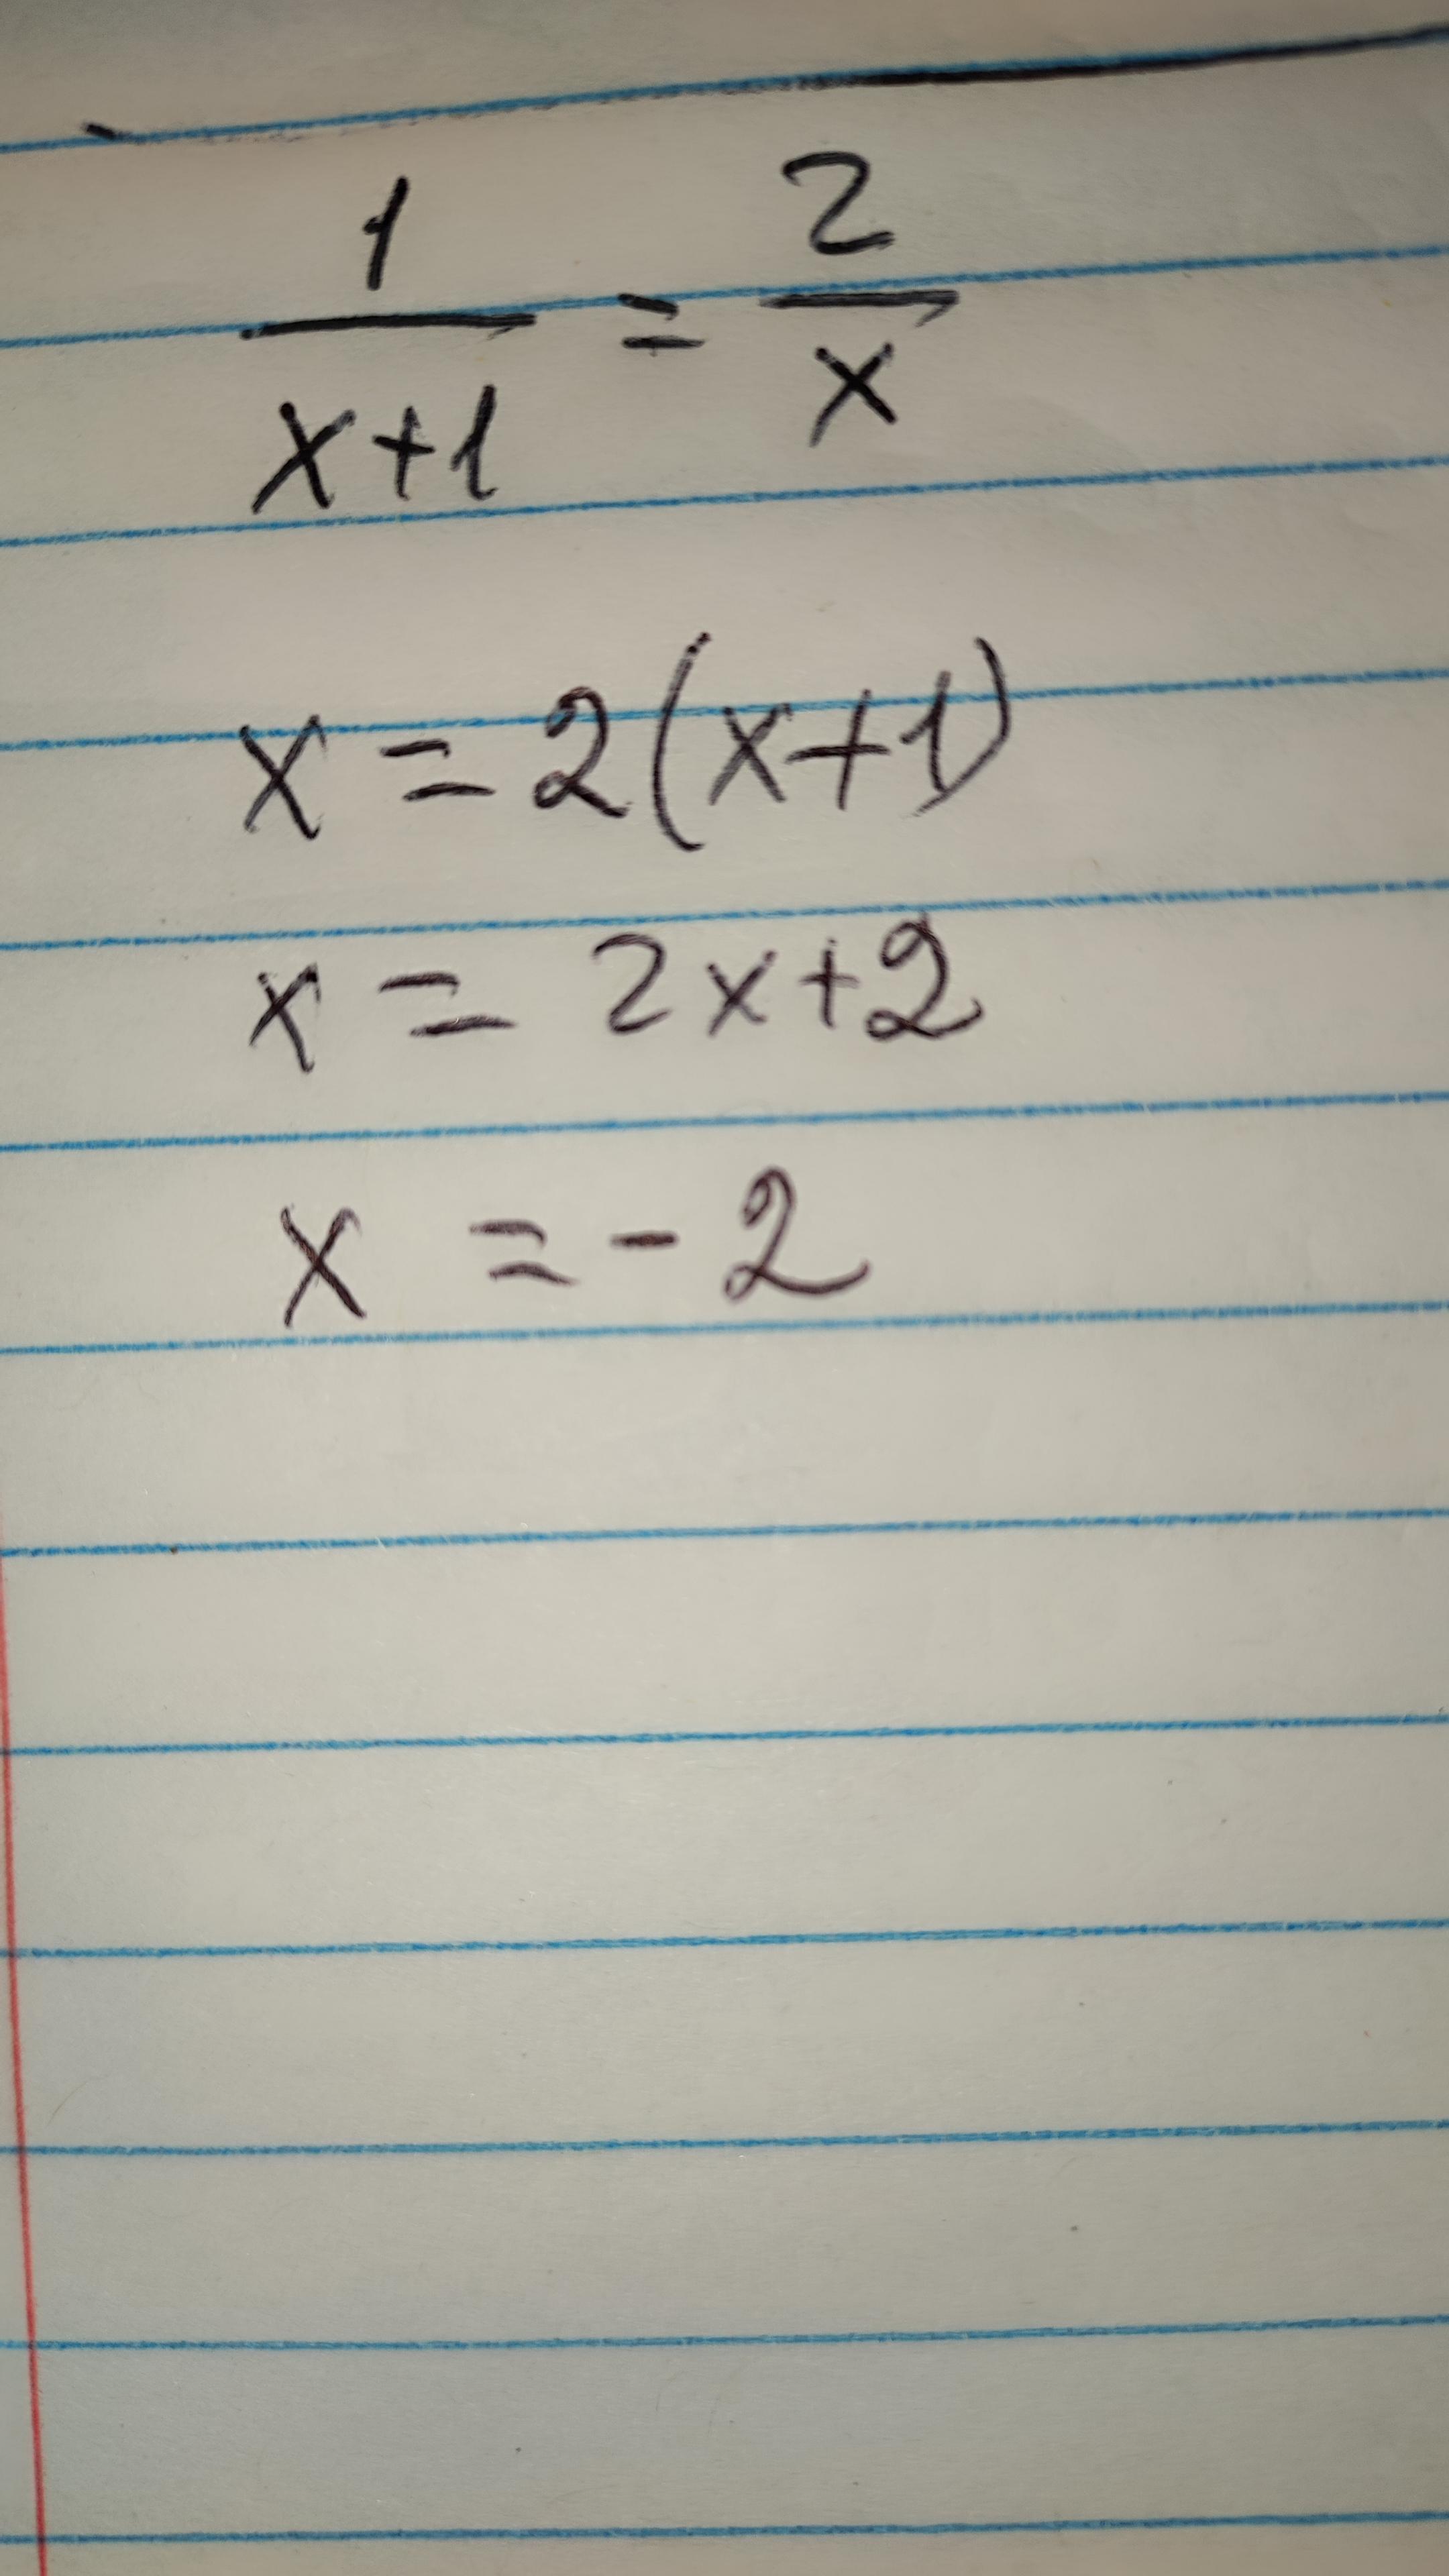 1/(x+1) = 2/x
x = 2(x+1)
x = 2x+2
x = -2